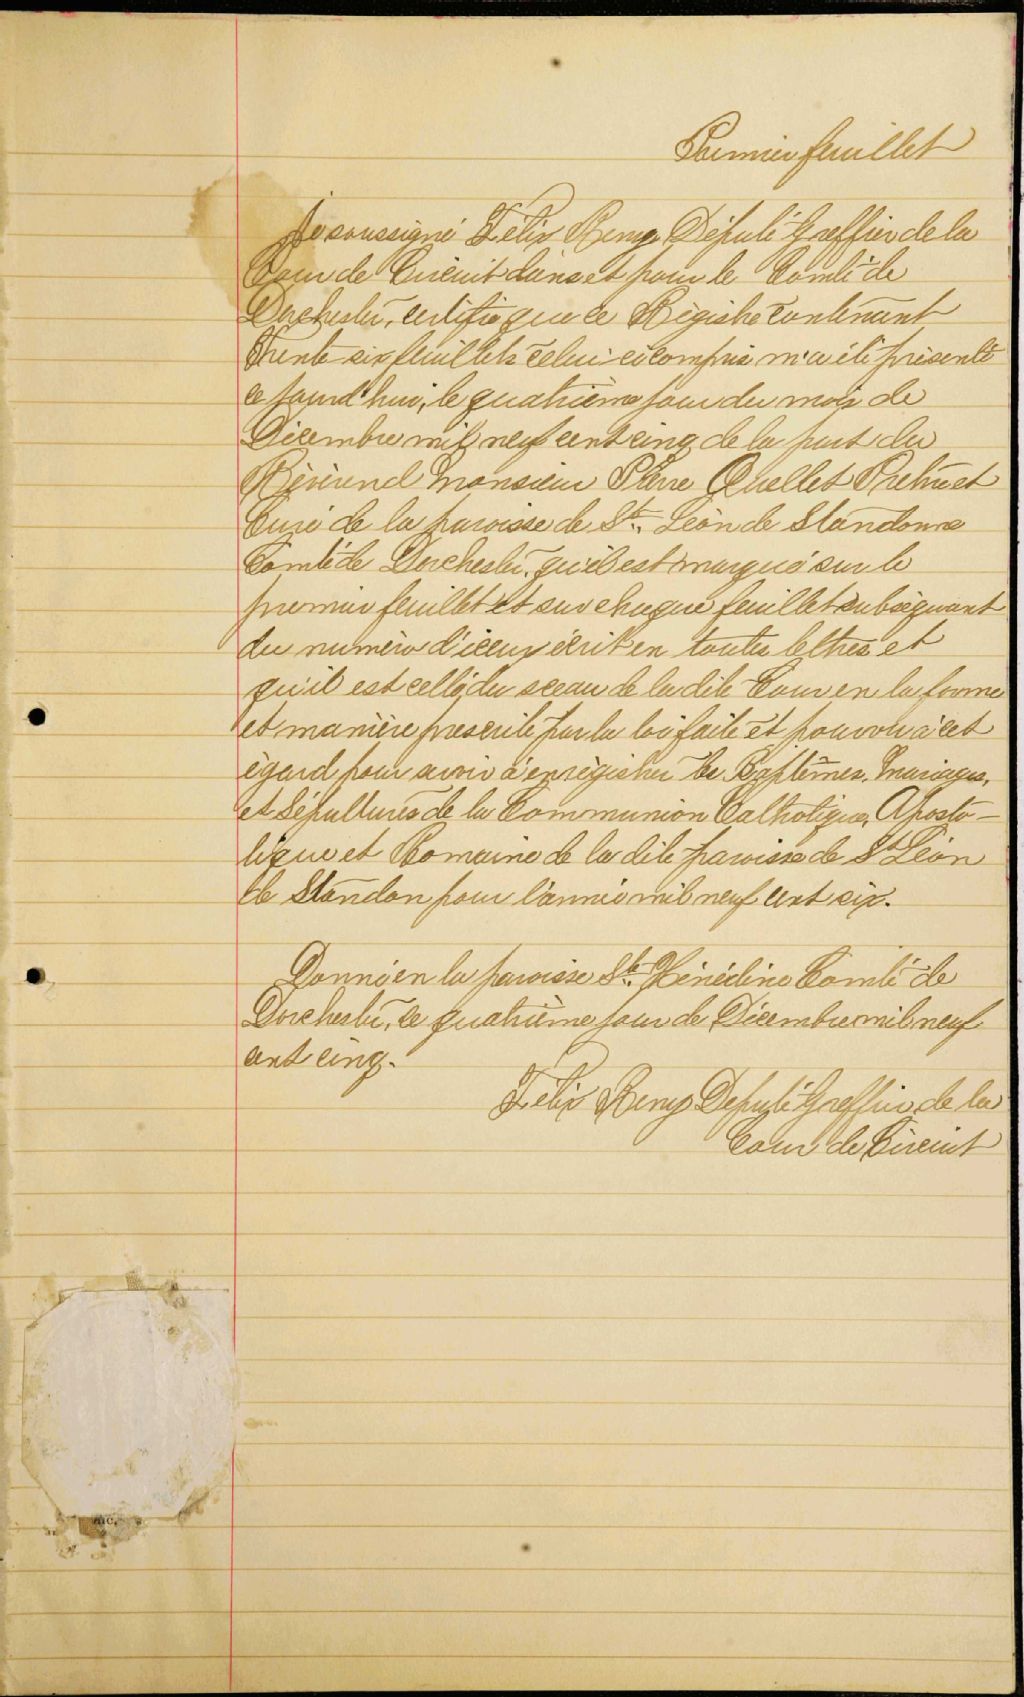 Premier feuillet
Je soussigné Félix Remy Député Greffier de la
Cour de Circuit dans et pour le Comté de
Dorchester, certifie que ce Régistre contenant
Trente six feuillets celui-ci compris m'a été présenté
ce jourd'hui, le quatrième jour du mois de
Décembre mil neuf cent cinq de la part du
Révérend Monsieur Pierre Ouellet Prêtre et
Curé de la paroisse de St. Léon de Standonne
Comté de Dorchester, qu'il est marqué sur le
premier feuillet et sur chaque feuillet subséquant
du numéro d'iceux écrit en toutes lettres et
qu'il est cellé du sceau de la dite Cour en la forme
et manière prescrite par la loi faite et pourvu à cet
égard pour servir à enrégistrer les Baptêmes, Mariages,
et Sépultures de la Communion Catholique, Aposto-
lique et Romaine de la dite paroisse de St Léon
de Standon pour l'année mil neuf cent six.
Donné en la paroisse Ste. Hénédine Comté de
Dorchester, ce quatrième jour de Décembre mil neuf
cent cinq.
Félix Remy Député Greffier de la
Cour de Circuit